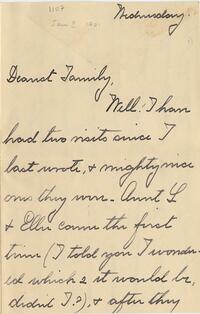 Wednesday.
Dearest Family,
Well! I have
had two visits since I
last wrote, & mighty nice
ones they were. Aunt L
& Ellie came the first
time (I told you I wonder-
ed which 2 it would be,
didn't I?), & after they